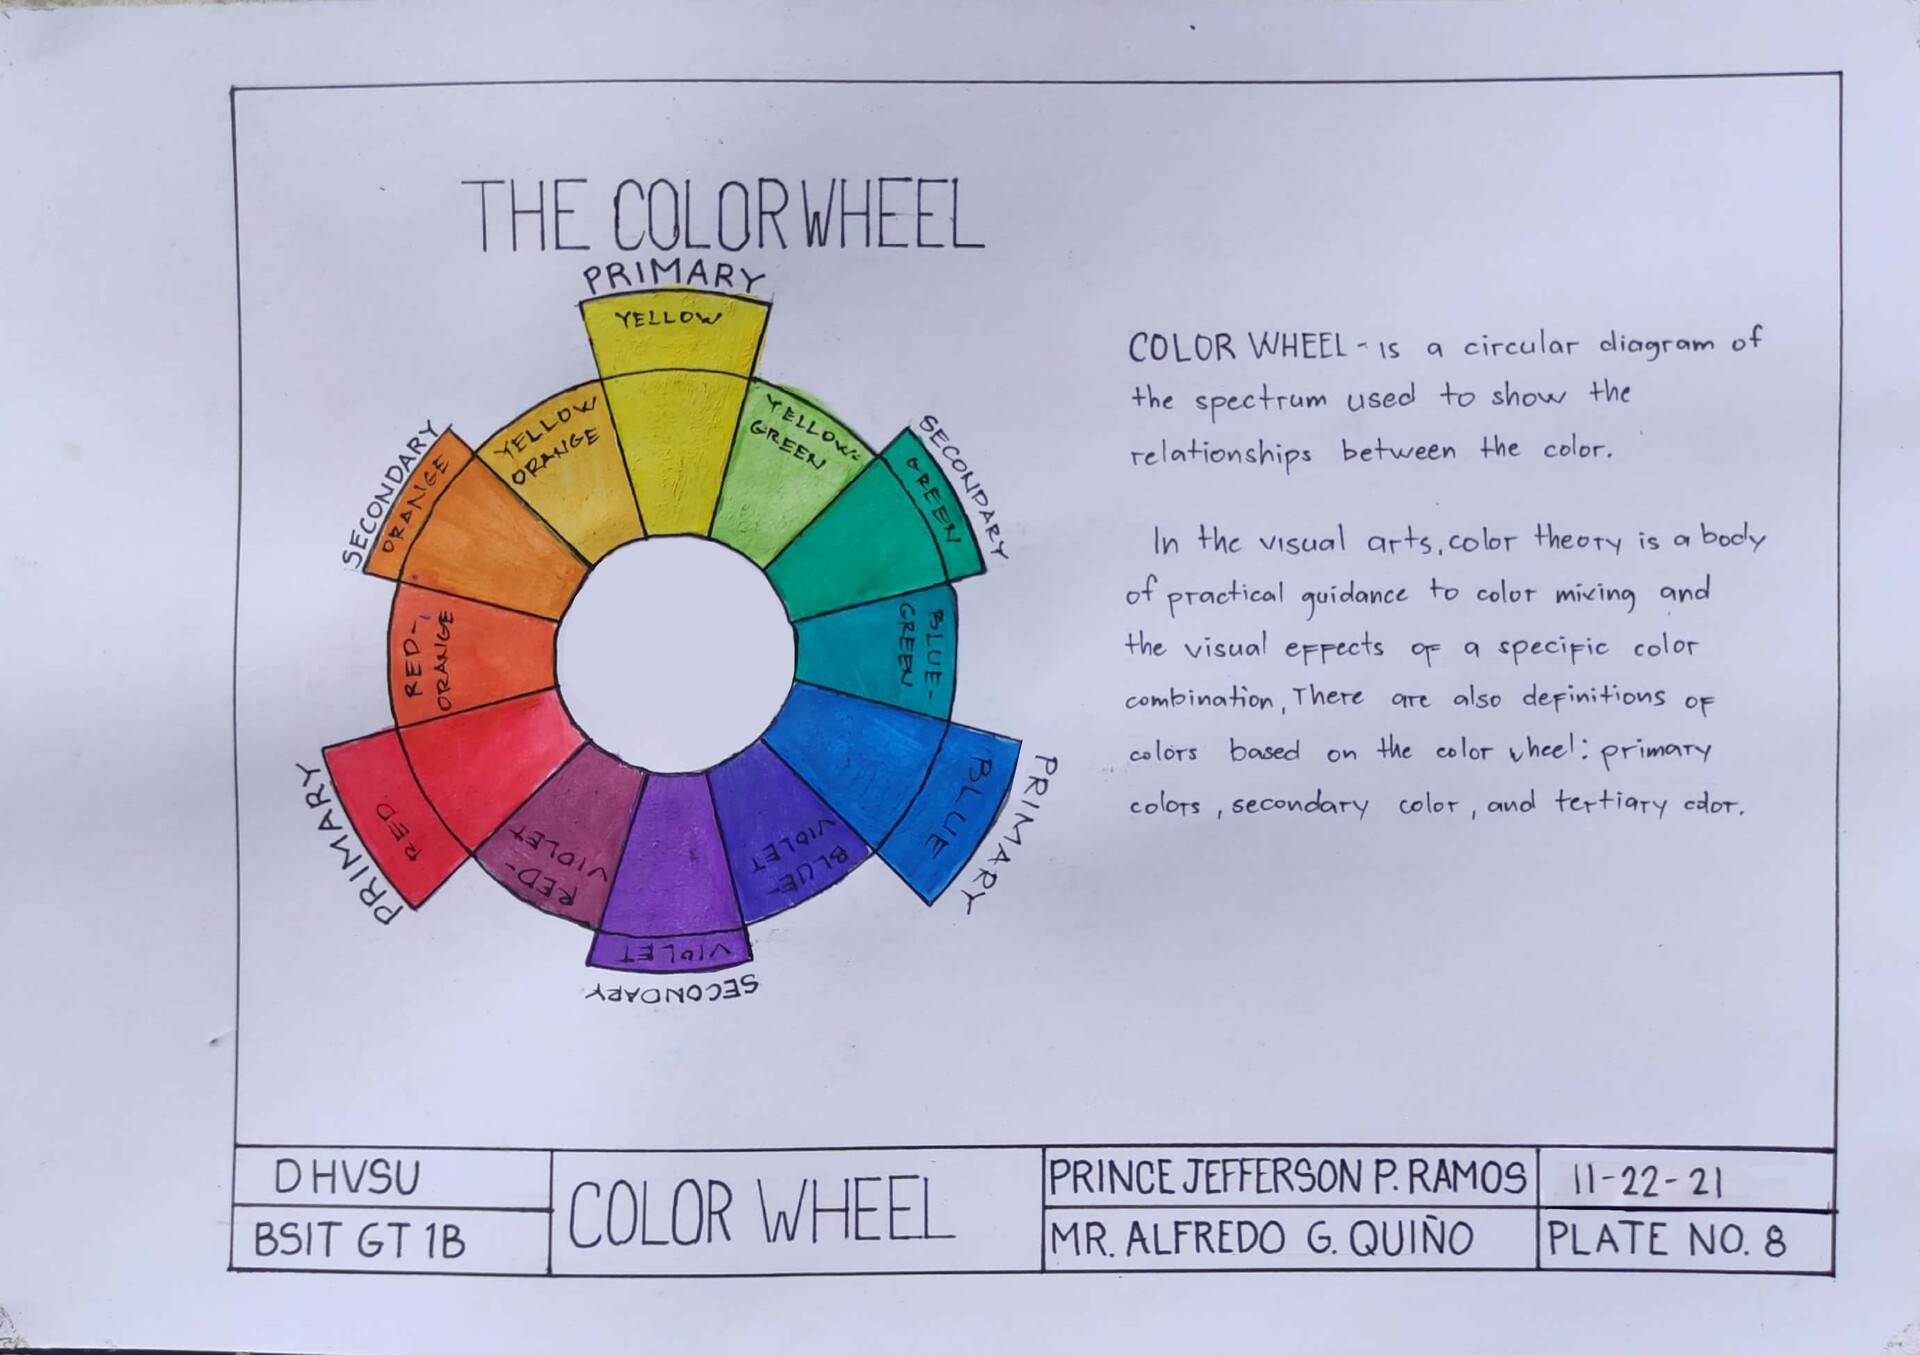 THE COLOR WHEEL
PRIMARY
YELLOW
YELLOW-
GREEN
SECONDARY
GREEN
BLUE-
GREEN
PRIMARY
BLUE
BLUE-
VIOLET
SECONDARY
VIOLET
RED-
VIOLET
PRIMARY
RED
RED-
ORANGE
SECONDARY
ORANGE
YELLOW
ORANGE
COLOR WHEEL - is a circular diagram of
the spectrum used to show the
relationships between the color.
In the visual arts, color theory is a body
of practical guidance to color mixing and
the visual effects of a specific color
combination, There are also definitions of
colors based on the color wheel: primary
colors, secondary color, and tertiary color.
DHVSU
BSIT GT 1B
COLOR WHEEL
PRINCE JEFFERSON P. RAMOS
MR. ALFREDO G. QUIÑO
11-22-21
PLATE NO. 8